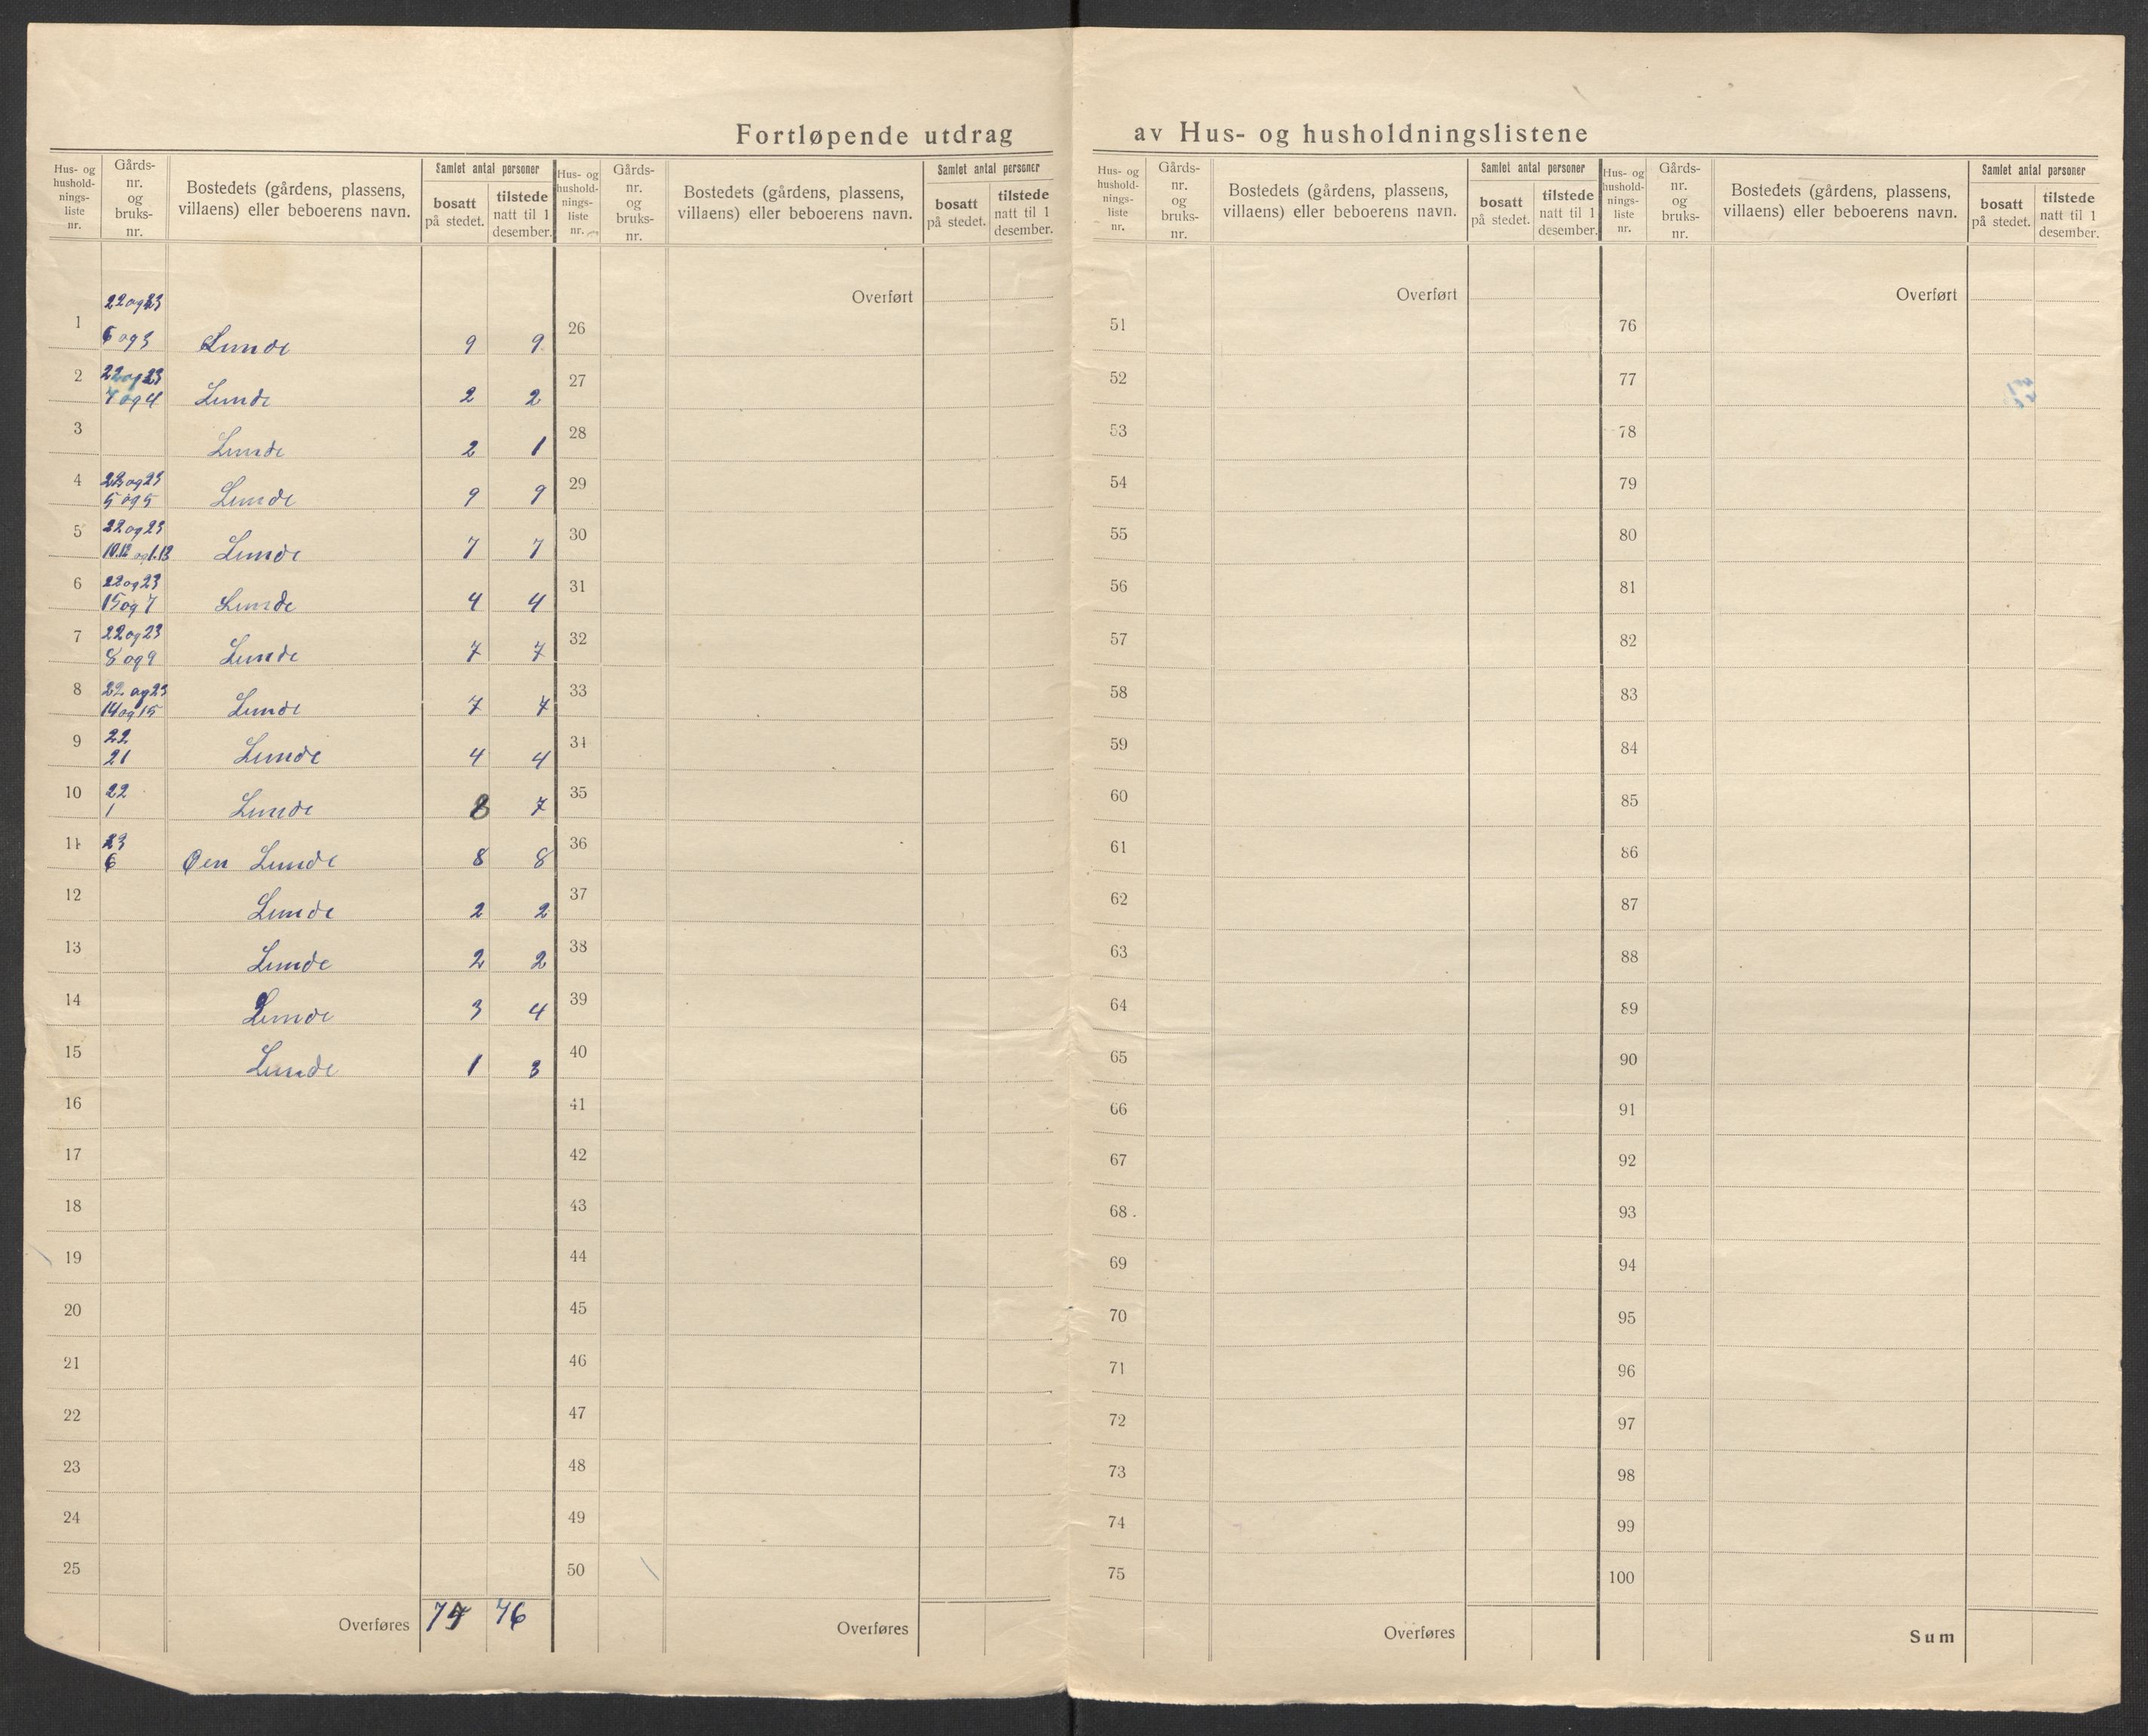 Fortløpende utdrag av Hus- og husholdningslistene
Hus- og hushold- nings- liste nr. Gårds- nr. og bruks- nr. Bostedets (gårdens, plassens, villaens) eller beboerens navn. Samlet antal personer bosatt på stedet. tilstede natt til 1 desember.
Hus- og hushold- nings- liste nr. Gårds- nr. og bruks- nr. Bostedets (gårdens, plassens, villaens) eller beboerens navn. Samlet antal personer bosatt på stedet. tilstede natt til 1 desember.
Hus- og hushold- nings- liste nr. Gårds- nr. og bruks- nr. Bostedets (gårdens, plassens, villaens) eller beboerens navn. Samlet antal personer bosatt på stedet. tilstede natt til 1 desember.
Hus- og hushold- nings- liste nr. Gårds- nr. og bruks- nr. Bostedets (gårdens, plassens, villaens) eller beboerens navn. Samlet antal personer bosatt på stedet. tilstede natt til 1 desember.
22 og 23
1 6 og 3 Lunde 9 9
2 22 og 23
4 og 4 Lunde 2 2
3 Lunde 2 1
4 22 og 23
5 og 5 Lunde 9 9
5 22 og 23
10.12 og 1.13 Lunde 7 7
6 22 og 23
15 og 7 Lunde 4 4
7 22 og 23
8 og 9 Lunde 7 7
8 22 og 23
14 og 15 Lunde 7 7
9 22
21 Lunde 4 4
10 22
1 Lunde 8 7
11 23
6 Øen Lunde 8 8
12 Lunde 2 2
13 Lunde 2 2
14 Lunde 3 4
15 Lunde 1 3
16
17
18
19
20
21
22
23
24
25
Overføres 75 76
Overført
26
27
28
29
30
31
32
33
34
35
36
37
38
39
40
41
42
43
44
45
46
47
48
49
50
Overføres
Overført
51
52
53
54
55
56
57
58
59
60
61
62
63
64
65
66
67
68
69
70
71
72
73
74
75
Overføres
Overført
76
77
78
79
80
81
82
83
84
85
86
87
88
89
90
91
92
93
94
95
96
97
98
99
100
Sum